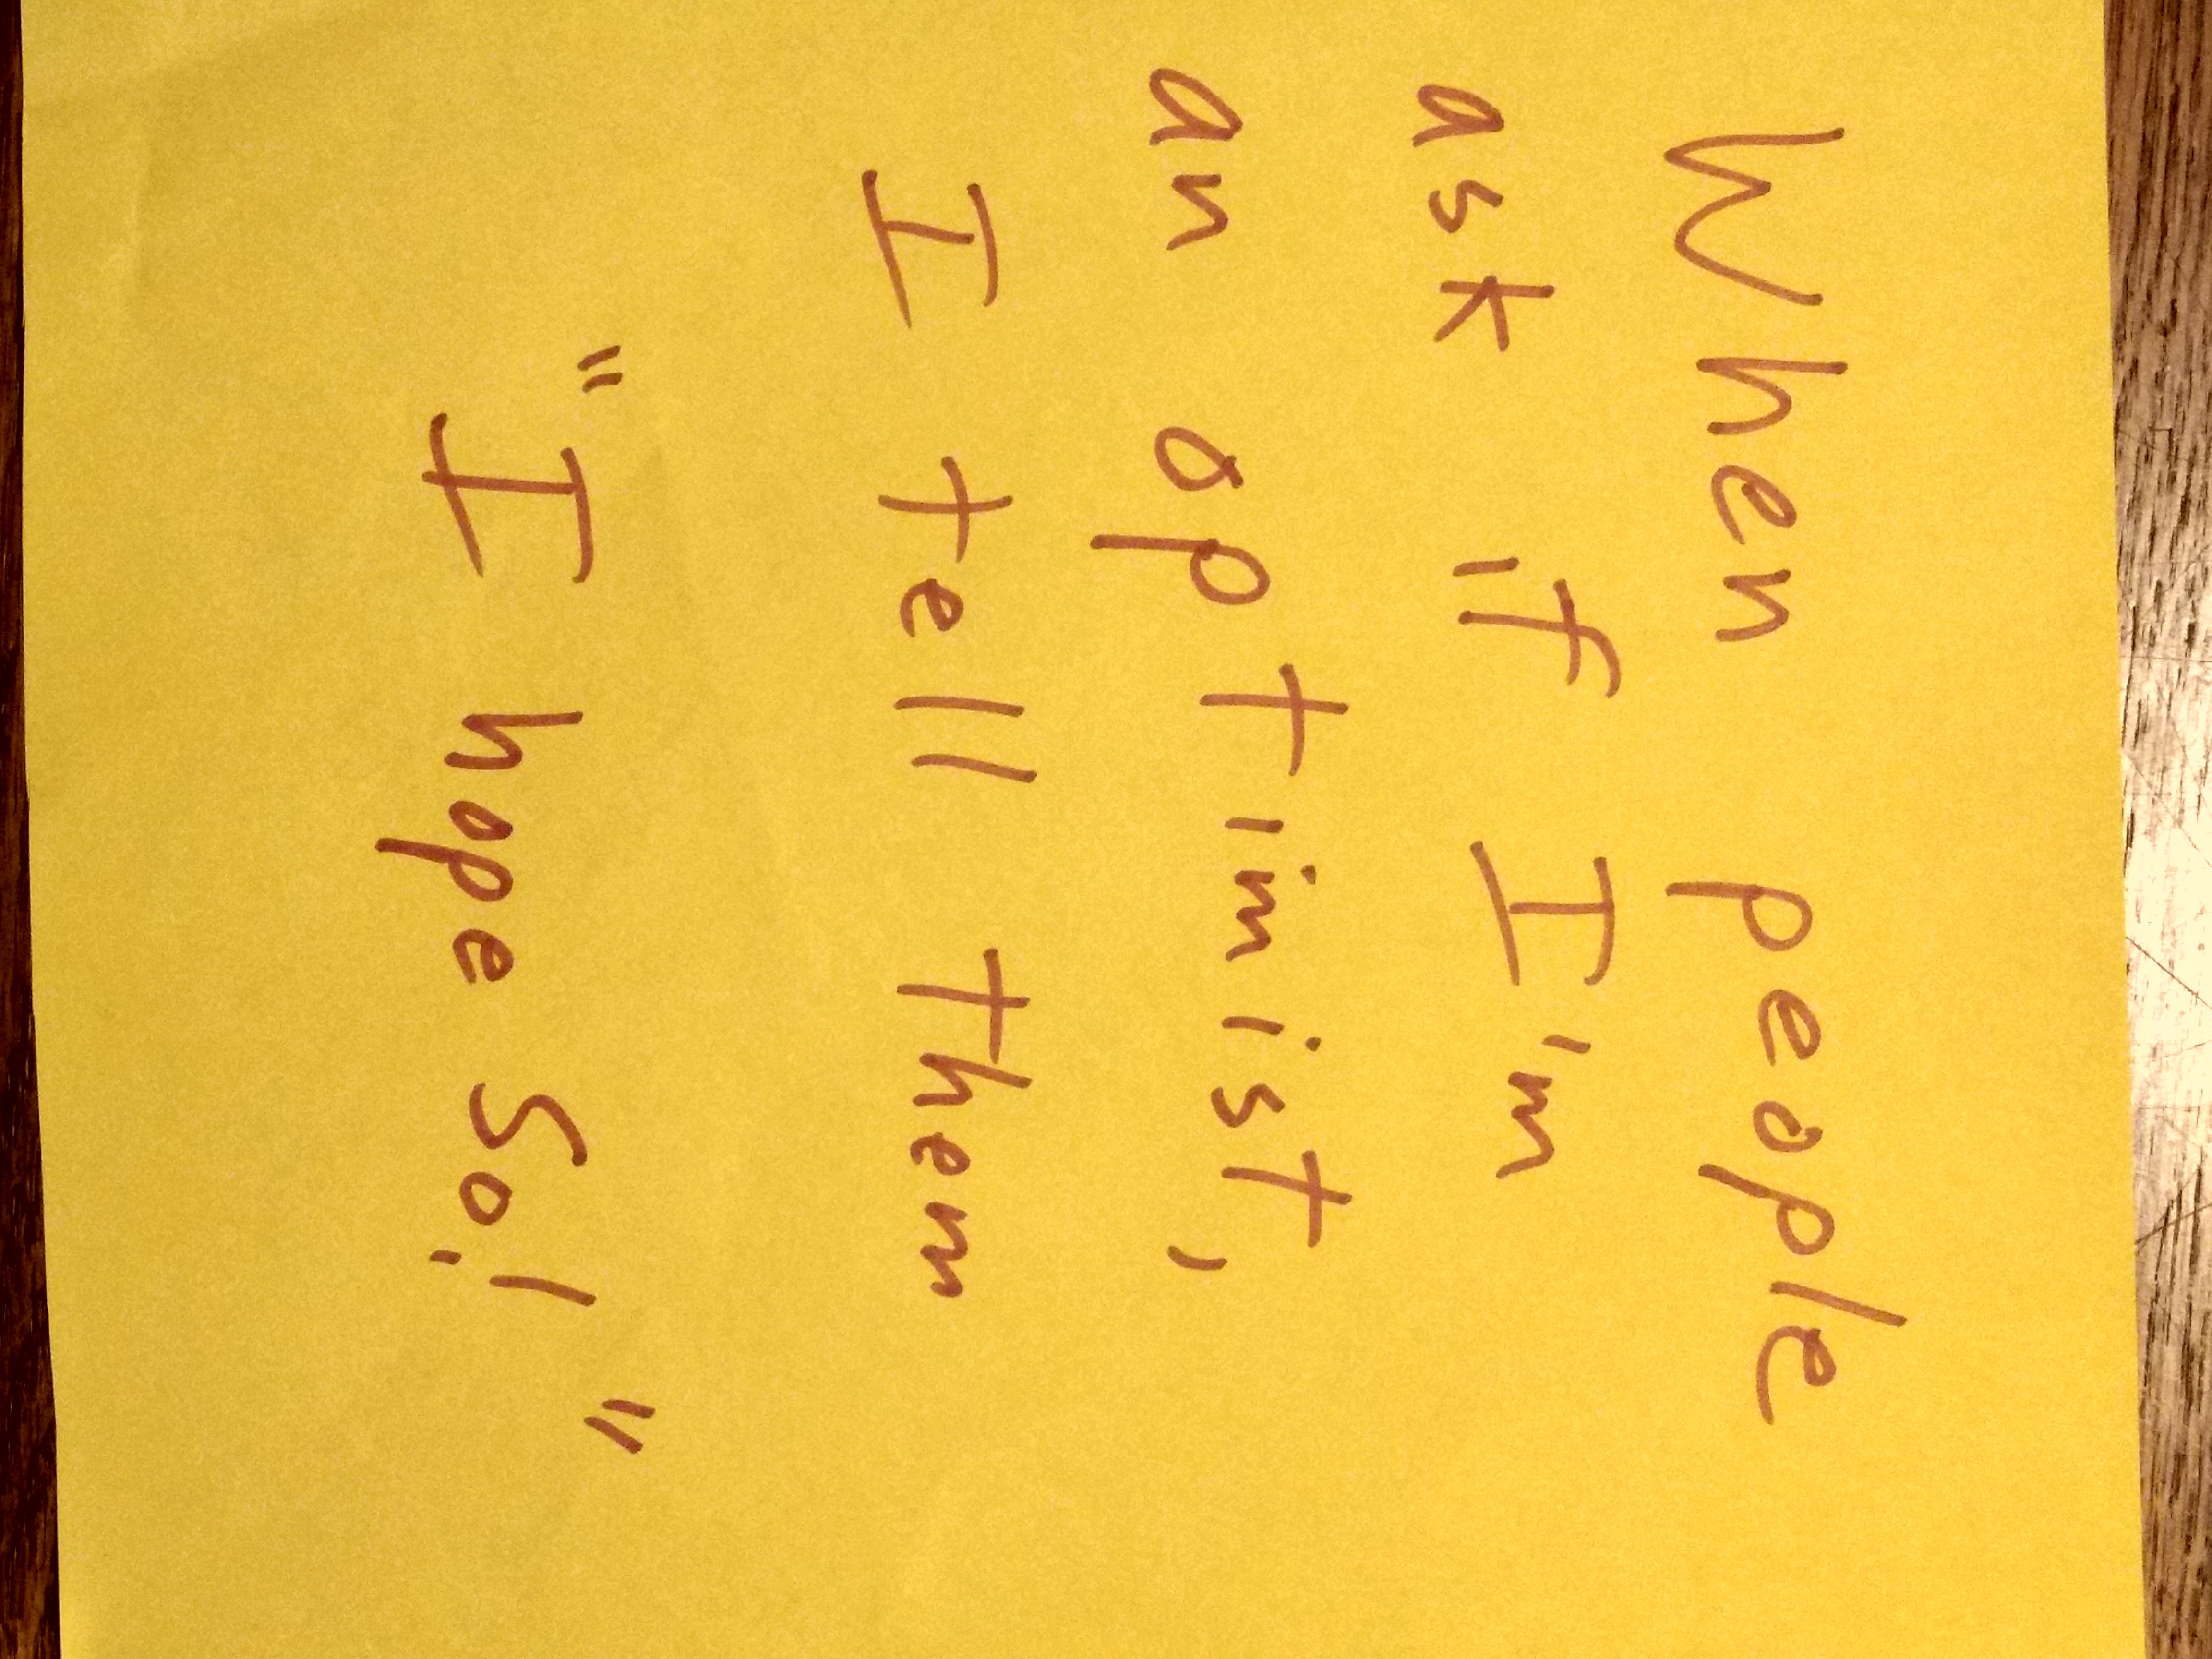 When people
ask if I'm
an optimist,
I tell them
"I hope so!"